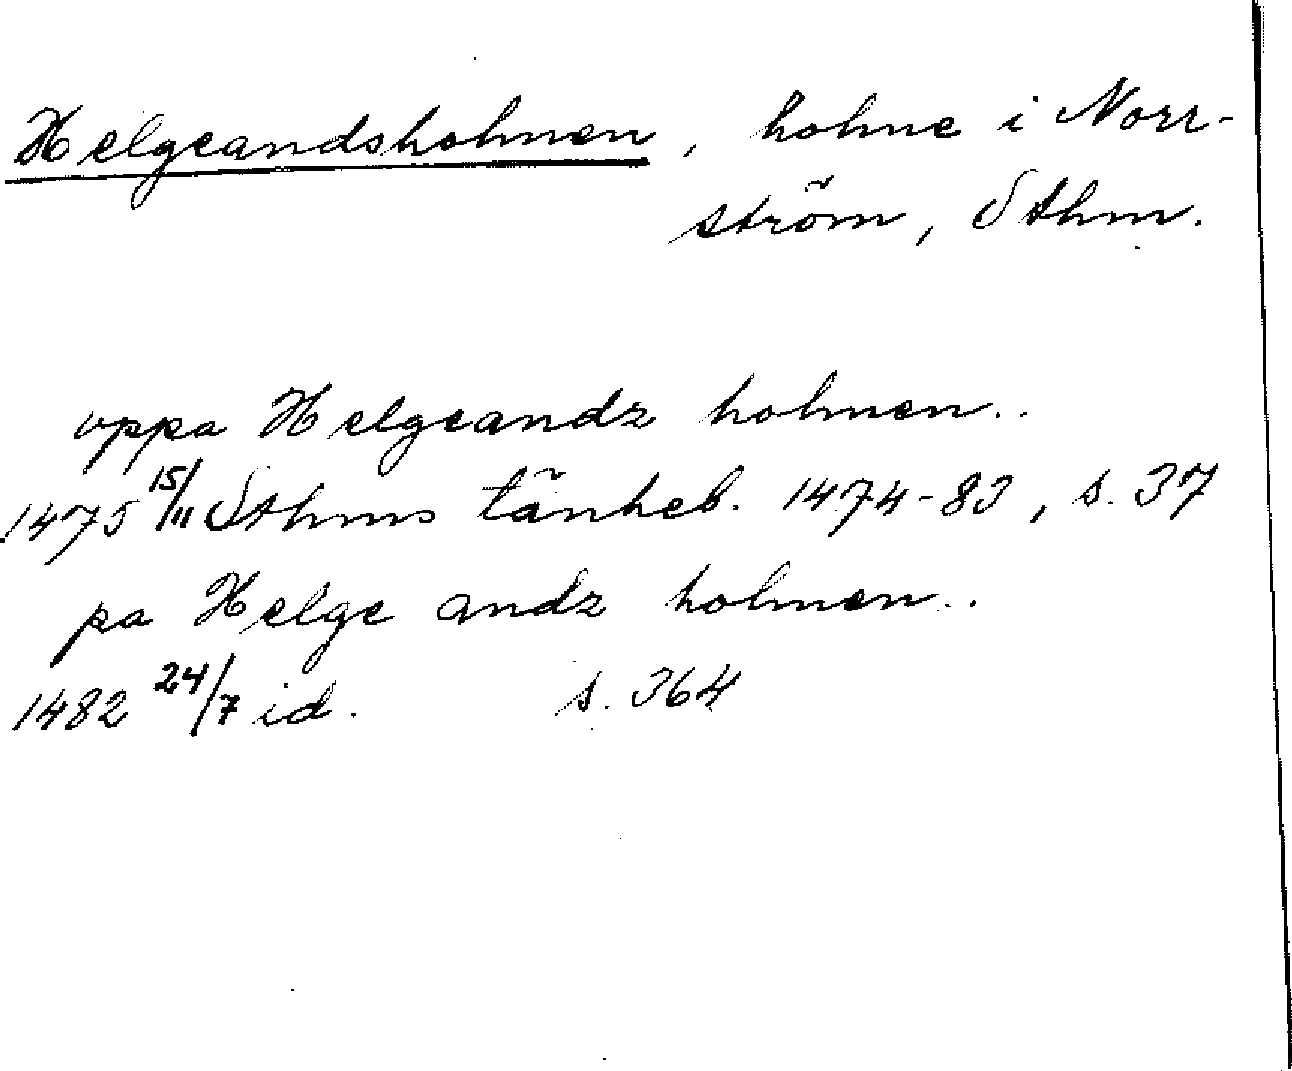 Helgeandsholmen, holme i Norr-
ström, Sthm.
vppa Helgeandz holmen..
1475 15/11 Sthms tänkeb. 1474-83, s. 37
pa Helge andz holmen..
1482 24/7 id. s. 364